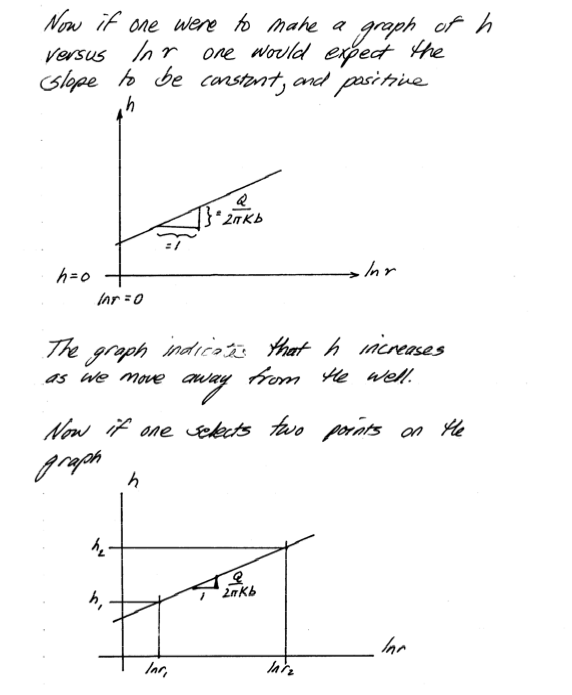 Now if one were to make a graph of h
versus ln r one would expect the
slope to be constant, and positive
h
} = Q / 2πKb
= 1
h=0
ln r
ln r = 0
The graph indicates that h increases
as we move away from the well.
Now if one selects two points on the
graph
h
h₂
Q / 2πKb
1
h₁
ln r
ln r₁
ln r₂